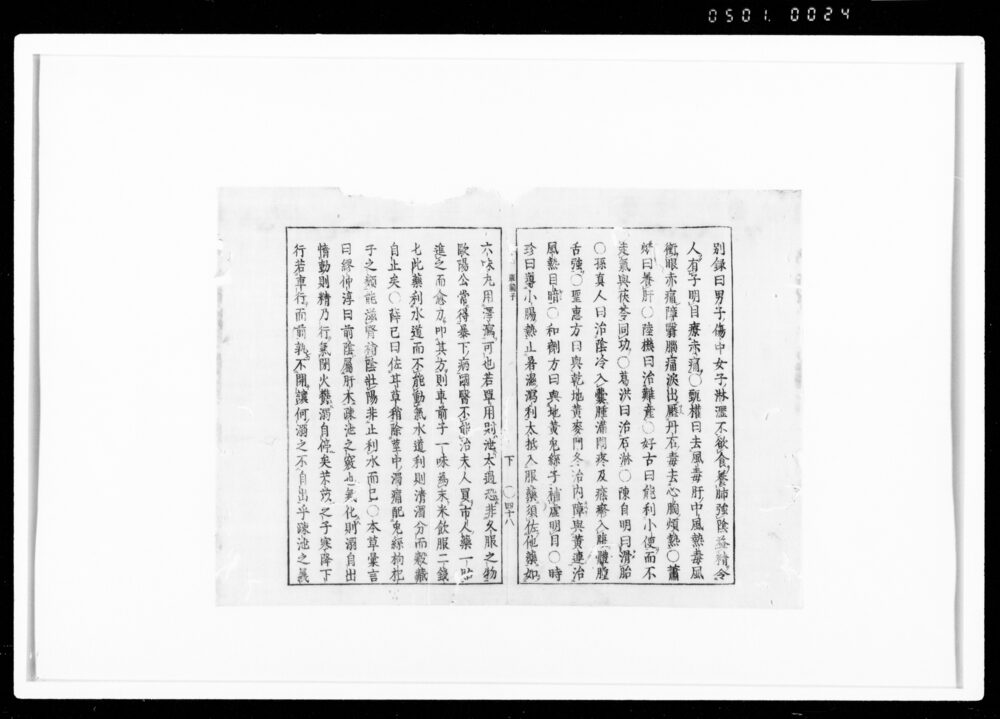 0501. 0024
別錄曰男子傷中女子淋瀝不欲食養肺強陰益精令
人有子明目療赤痛○甄權曰去風毒肝中風熱毒風
衝眼赤痛障翳腦痛淚出壓丹石毒去心胸煩熱○蕭
炳曰養肝○陸機曰治難產○好古曰能利小便而不
走氣與茯苓同功○葛洪曰治石淋○陳自明曰滑胎
○孫真人曰治陰冷入囊腫滿悶疼及癮疹入腹體腫
舌強○聖惠方曰與乾地黃麥門冬治內障與黃連治
風熱目暗○和劑方曰與地黃兔絲子補虛明目○時
珍曰導小腸熱止暑濕瀉利大抵入服藥須佐他藥如
下
○四十八
六味丸用澤瀉可也若單用則泄太過恐非久服之物
歐陽公常得暴下病國醫不能治夫人買市人藥一貼
進之而愈力叩其方則車前子一味為末米飲服二錢
七此藥利水道而不能動氣水道利則清濁分而穀藏
自止矣○薛己曰佐耳草稍除莖中濁痛配兔絲枸杞
子之類能滋腎強陰壯陽非止利水而已○本草彙言
曰繆仲淳曰前陰屬肝木疎泄之竅也氣化則溺自出
情動則精乃行氣閉火鬱溺自停矣茉苡之子寒降下
行若車行而前孰不開讓何溺之不自出乎疎泄之義